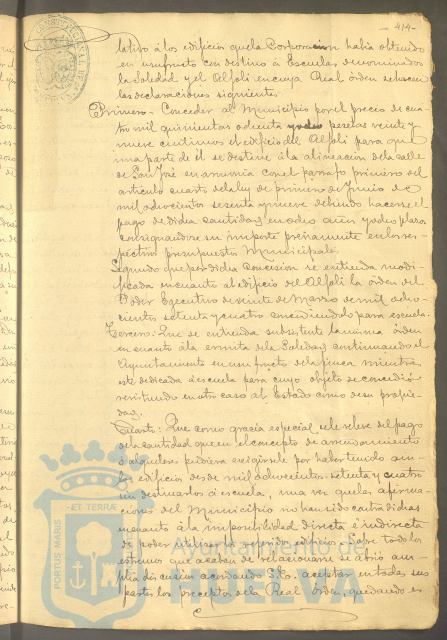 414
latido á los edificios que la Corporacion habia obtenido
en usufructo con destino á Escuelas denominados
la Soledad y el Alfolí en cuya Real órden se hacen
las declaraciones siguientes
Primero. Conceder al Municipio por el precio de cua
tro mil quinientas ochenta y dos pesetas veinte y
nueve centimos el edificio del Alfolí para que
una parte de él se destine á la alineacion de la calle
de San José en armonia con el parrafo primero del
articulo cuarto de la ley de primero de Junio de
mil ochocientos sesenta y nueve debiendo hacerse el
pago de dicha cantidad en dies años y dies plazos
consignandose su importe préviamente en los res-
pectivos presupuestos Municipales.
Segundo que por dicha concesion se entienda modi
ficada en cuanto al edificio del Alfolí la órden del
Poder Ejecutivo de veinte de Marzo de mil ocho-
cientos setenta y cuatro concediendolo para escuela.
Tercero. Que se entienda subsistente la misma órden
en cuanto á la ermita de la Soledad continuando el
Ayuntamiento en usufructo de la finca mientras
esté dedicada á escuela para cuyo objeto se concedió
revirtiendo en otro caso al Estado como de su propie
dad.
Cuarto: Que como gracia especial se le releve del pago
de la cantidad que en el concepto de arrendamiento
ó alquileres pudiera exigirsele por haber tenido am
bos edificios desde mil ochocientos setenta y cuatro
sin destinarlos á escuela, una vez que las afirma-
ciones del Municipio no han sido contradichas
en cuanto á la imposibilidad directa é indirecta
de poder utilizar los referidos edificios. Sobre todos los
estremos que acaban de relacionarse se abrió am
plia discusion acordando S.S. aceptar en todas sus
partes los preceptos de la Real órden, quedando en
PORTUS MARIS
ET TERRA
Ayuntamiento de
HUELVA